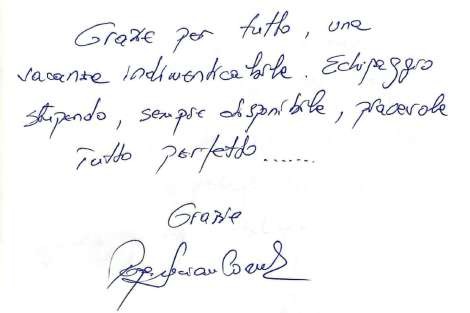 Grazie per tutto, una
vacanza indimenticabile. Echipaggio
stupendo, sempre disponibile, piacevole
Tutto perfetto.......
Grazie